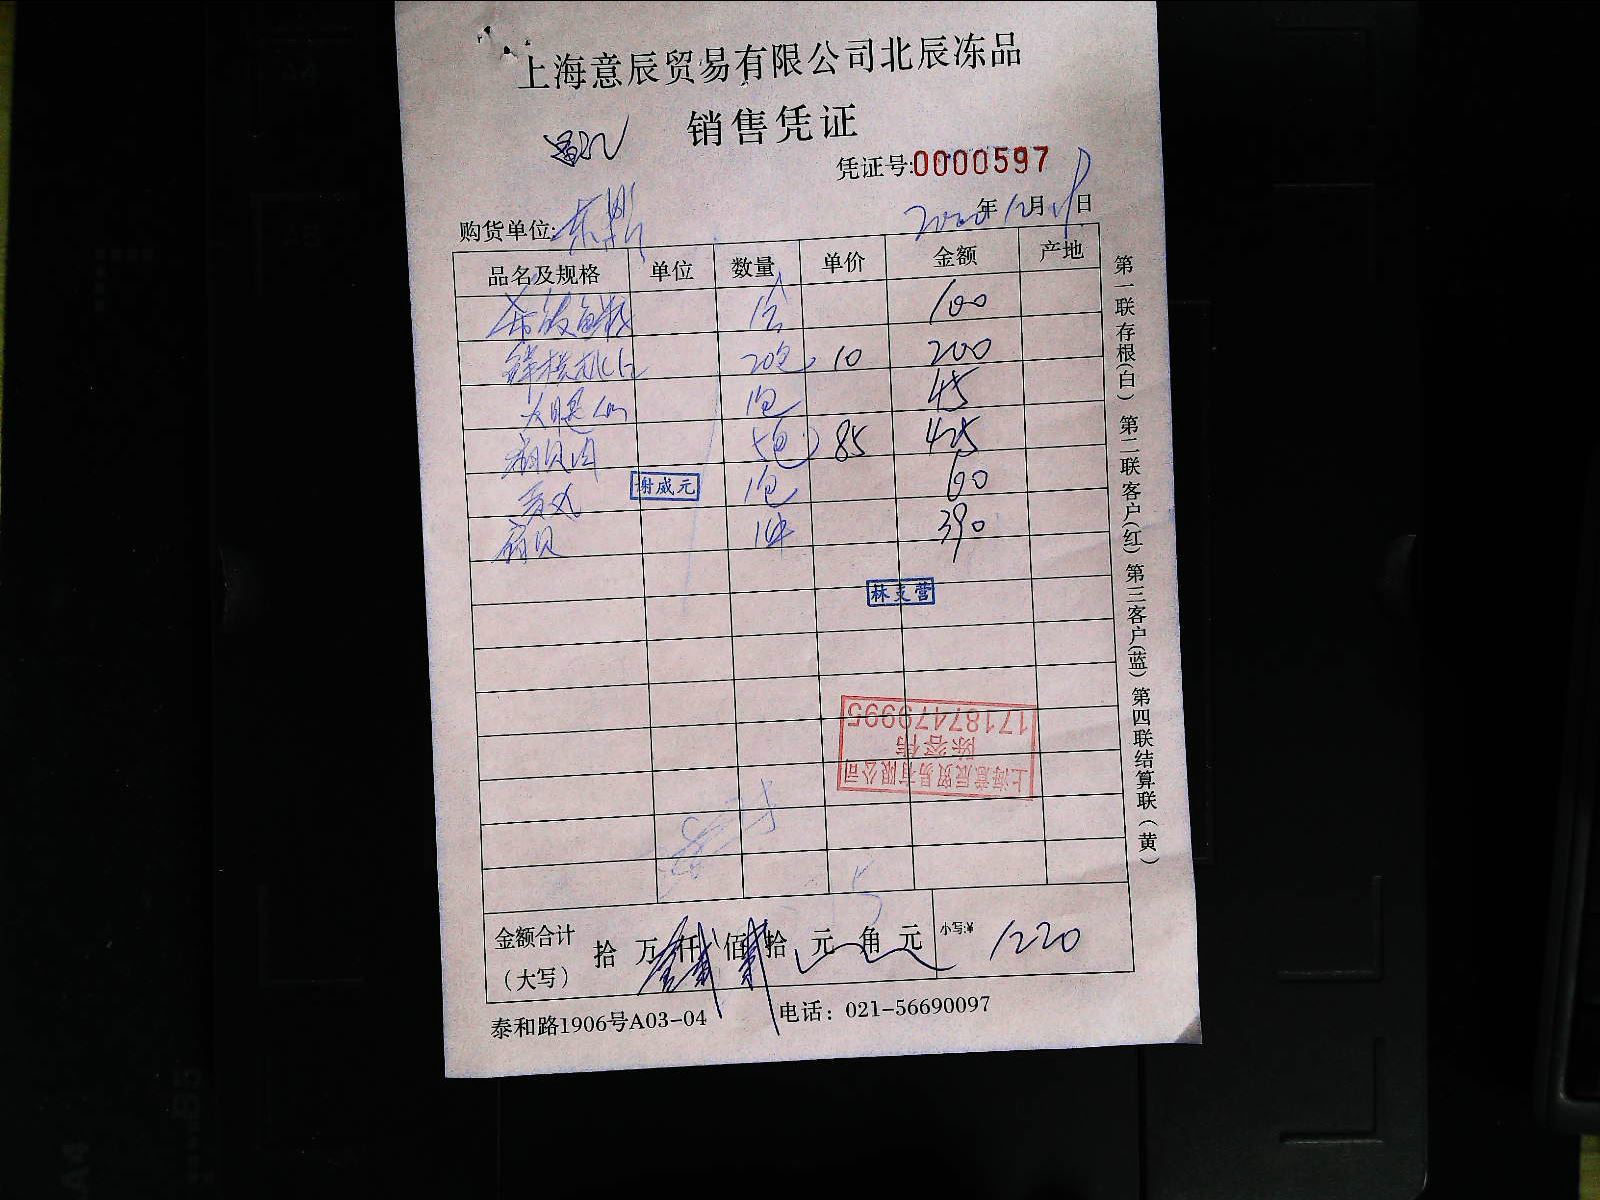 上海意辰贸易有限公司北辰冻品
销售凭证
凭证号:0000597
购货单位: 年12月 日
品名及规格 单位 数量 单价 金额 产地
希鲮鱼籽 1盒 100
20包 10 200
火腿仙 1包 45
扇贝肉 5包 85 425
贡丸 1包 60
谢威元
扇贝 1件 390
林支营
上海意辰贸易有限公司
陈容信
17187479995
金额合计(大写) 拾 万 仟 佰 拾 元 角 元 小写:¥ 1220
泰和路1906号A03-04 电话：021-56690097
第一联存根(白) 第二联客户(红) 第三客户(蓝) 第四联结算联(黄)